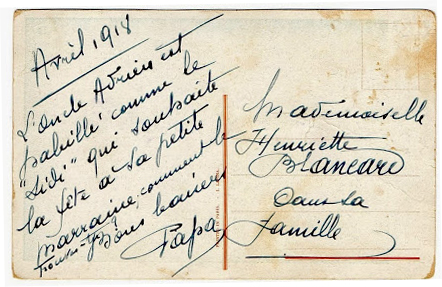 Avril 1918
L'oncle Adrien est
habillé comme le
"Sidi" qui souhaite
la fête à sa petite
marraine, comment le
trouves-tu?
Bons baisers
Papa
Mademoiselle
Henriette
Blancard
Dans sa
famille